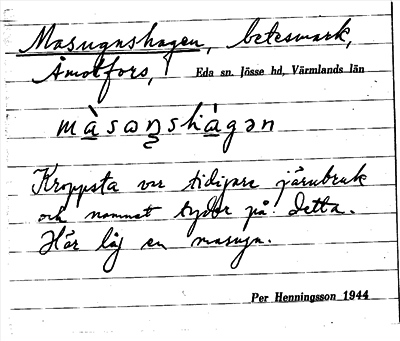 Masugnshagen, betesmark,
Åmotfors, Eda sn. Jösse hd, Värmlands län
màsaŋshàgən
Kroppsta var tidigare järnbruk
och namnet tyder på detta.
Här låg en masugn.
Per Henningsson 1944